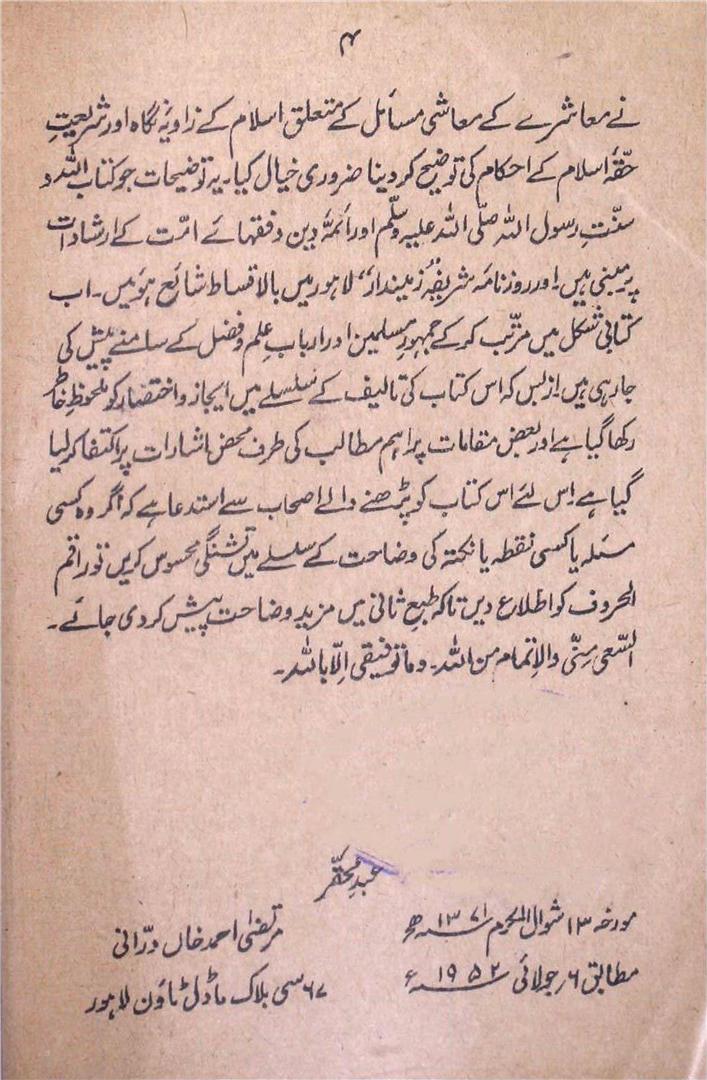 ۴
نے معاشرے کے معاشی مسائل کے متعلق اسلام کے زاویۂ نگاہ اور شریعتِ
حقّۂ اسلام کے احکام کی توضیح کر دینا ضروری خیال کیا۔ یہ توضیحات جو کتاب اللہ و
سنّتِ رسول اللہ صلّی اللہ علیہ وسلّم اور ائمّۂ دین و فقہائے امّت کے ارشادات
پر مبنی ہیں۔ اور روزنامہ شریفہ "زمیندار" لاہور میں بالاقساط شائع ہوئیں۔ اب
کتابی شکل میں مرتّب کر کے جمہور مسلمین اور اربابِ علم و فضل کے سامنے پیش کی
جا رہی ہیں۔ از بس کہ اس کتاب کی تالیف کے سلسلے میں ایجاز و اختصار کو ملحوظِ خاطر
رکھا گیا ہے اور بعض مقامات پر اہم مطالب کی طرف محض اشارات پر اکتفا کر لیا
گیا ہے اِس لئے اس کتاب کو پڑھنے والے اصحاب سے استدعا ہے کہ اگر وہ کسی
مسئلہ یا کسی نقطہ یا نکتہ کی وضاحت کے سلسلے میں تشنگی محسوس کریں تو راقم
الحروف کو اطلاع دیں تاکہ طبع ثانی میں مزید وضاحت پیش کر دی جائے۔
السّعی منّی والاِتمام من اللہ۔ وما توفیقی اِلّا باللہ۔
عبدِ محقّر
مورخہ ۱۳ شوال المکرم ۱۳۷۱ھ
مرتضٰی احمد خاں درّانی
مطابق ۶؍ جولائی ۱۹۵۲ء
۶۷ سی بلاک ماڈل ٹاؤن لاہور